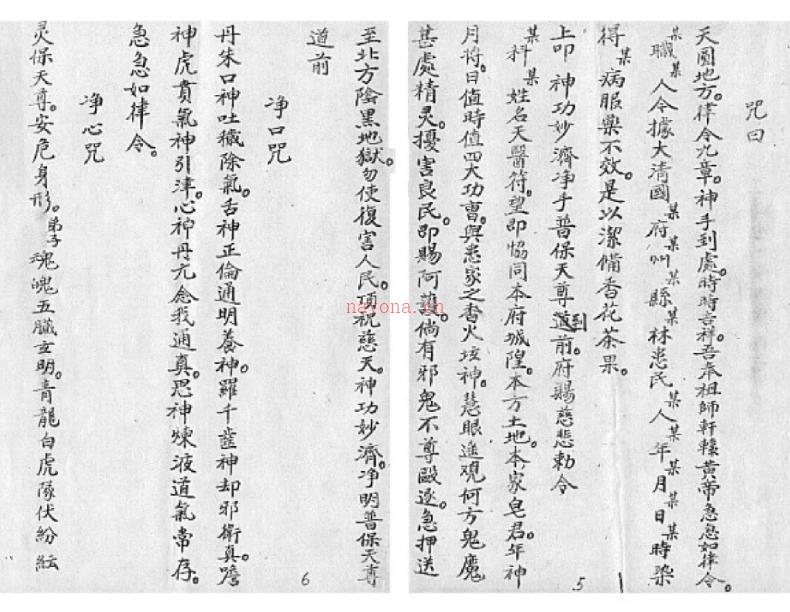 咒曰
天圓地方。律令九章。神手到處。時時吉祥。吾奉祖師軒轅黃帝急急如律令。
某職某人令據大清國某府某州某縣某林患民某人某年某月某日某時染
得某病服藥不效。是以潔備香花茶果。
上叩 神功妙濟净手普保天尊道到前。府賜慈悲勅令
某科某姓名天醫符。望即協同本府城隍。本方土地。本家皂君。年神
月將。日值時值四大功曺。與患家之香火垓神。慧眼遙观何方鬼魔
甚處精灵。擾害良民。即賜阿護。倘有邪鬼不尊毆逐。急押送
5
至北方陰黑地獄。勿使復害人民。頂祝慈天。神功妙濟。净明普保天尊
道前
净口咒
丹朱口神吐穢除氣。舌神正倫通明養神。羅千齒神却邪衛真。喉
神虎賁氣神引津。心神丹元念我通真。思神煉液道氣常存。
急急如律令。
净心咒
灵保天尊。安危身形。弟子魂魄五臟玄明。青龍白虎隊伏紛紜
6
nayona.cn